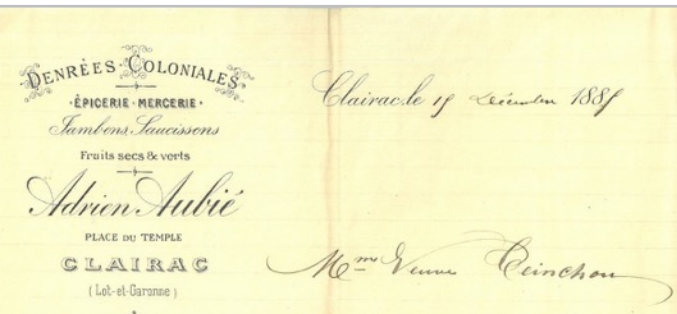 DENRÉES COLONIALES
ÉPICERIE - MERCERIE
Jambons, Saucissons
Fruits secs & verts
Adrien Aubié
PLACE DU TEMPLE
CLAIRAC
(Lot-et-Garonne)
Clairac, le 15 Décembre 188
Mme Veuve